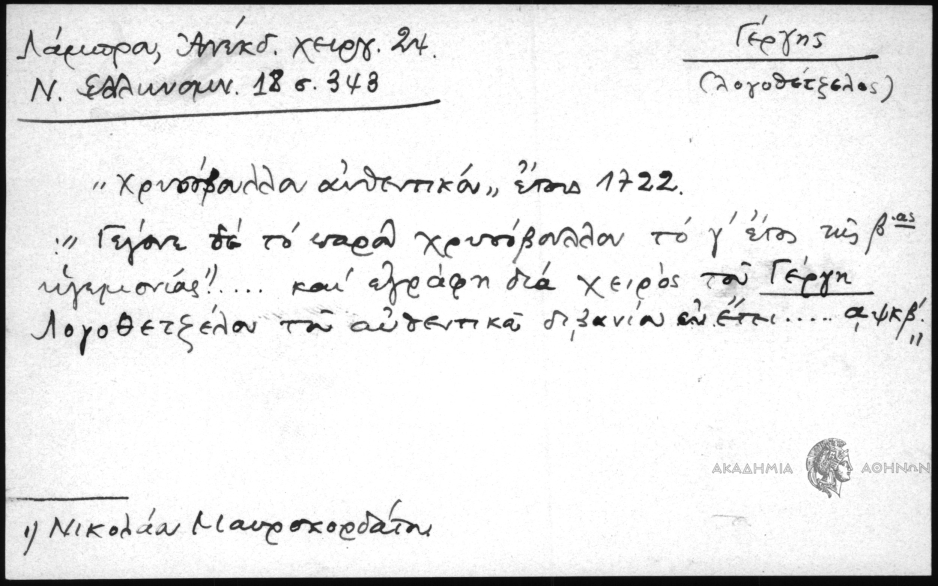 Λάμπρου, Ἀνέκδ. χειργ. 24.
Ν. Ἑλληνομν. 18 σ. 343
Γέργης
(λογοθέτζελος)
"Χρυσόβουλλον αὐθεντικόν" ἔτους 1722.
:" Γέγονε δὲ τὸ παρὸν χρυσόβουλλον τὸ γ' ἔτος τῆς β.ας
ἡγεμονίας¹⁾.... καὶ ἐγράφη διὰ χειρὸς τοῦ Γέργη
Λογοθετζέλου τοῦ αὐθεντικοῦ διβανίου ἐν ἔτει..... αψκβ'."
ΑΚΑΔΗΜΙΑ ΑΘΗΝΩΝ
1) Νικολάου Μαυροκορδάτου